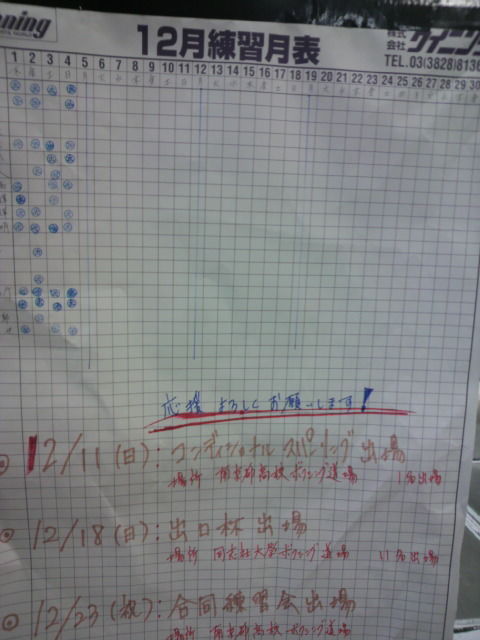 ning
12月練習月表
株式会社 ウイニング
TEL.03(3828)8136
1 2 3 4 5 6 7 8 9 10 11 12 13 14 15 16 17 18 19 20 21 22 23 24 25 26 27 28 29 30
応援 よろしく お願いします!
12/11(日):コンディショナル スパーリング 出場
場所 南京都高校 ボクシング道場 1名出場
12/18(日):出口杯 出場
場所 同志社大学ボクシング道場 11名出場
12/23(祝):合同練習会出場
場所 南京都高校 ボクシング道場